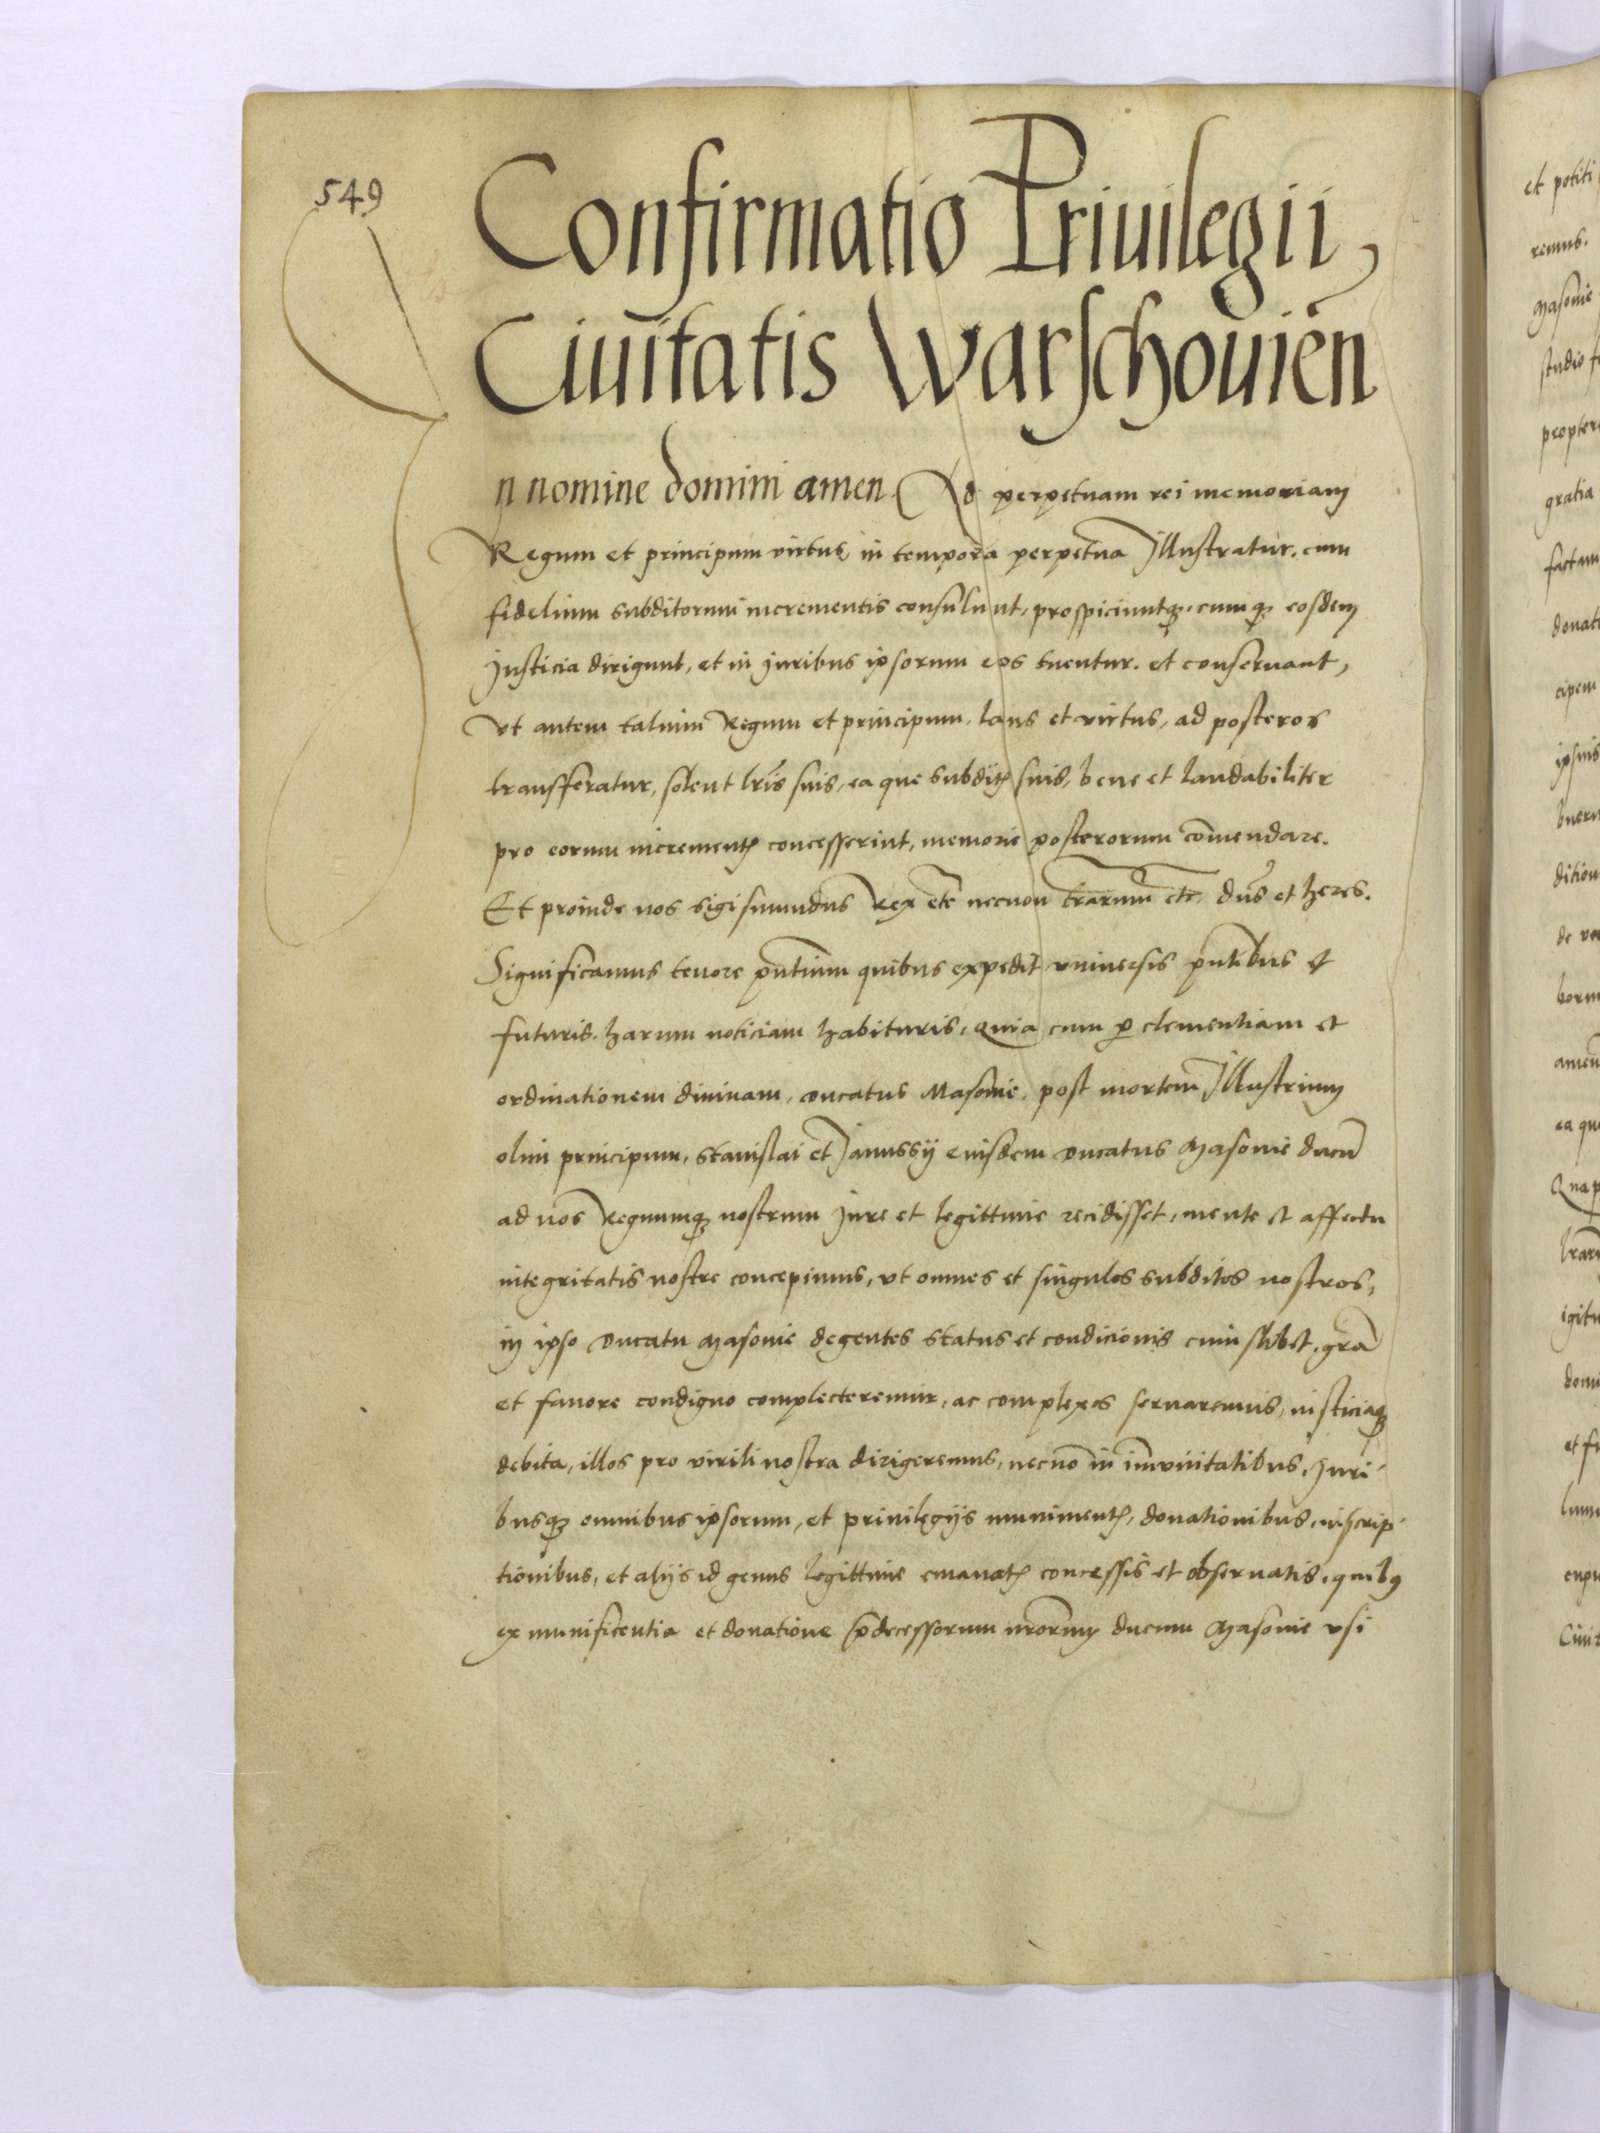 549
Confirmatio Priuilegii,
Ciuitatis Warschouien̄
n nomine domini amen. Ad perpetuam rei memoriam
Regum et principum virtus, in tempora perpetua Illustratur. cum
fidelium subditorum incrementis consulunt, prospiciuntqꝫ. cumqꝫ eosdem
Justicia dirigunt, et in Juribus ipsorum eos tuentur. et conseruant,
vt autem talium Regum et principum. laus et virtus, ad posteros
transfferatur, solent lr̄is suis, ea que subditꝭ suis, bene et laudabiliter
pro eorum incrementꝭ concesserint, memorie posterorum com̄endare.
Et proinde nos sigismundus Rex etc̄ necnon tr̄arum etc̄. dn̄s et heres.
Significamus tenore pn̄tium quibus expedit vniuersis pn̄tibus et
futuris. harum noticiam habituris, Quia cum ꝑ clementiam et
ordinationem diuinam, ducatus Masouie, post mortem Illustrium
olim principum, stanislai et Janussij eiusdem ducatus Masouie ducū
ad nos Regnumqꝫ nostrum Jure et legittime recidisset, mente et affectu
integritatis nostre concepimus, vt omnes et singulos subditos nostros,
in ipso ducatu Masouie degentes status et condicionis cuiuslibet, gr̄a
et fauore condigno complecteremur, ac complexos seruaremus, iusticiaqꝫ
debita, illos pro virili nostra dirigeremus, necnō in im̄unitatibus, Juri-
busqꝫ omnibus ipsorum, et priuilegijs munimentꝭ, donationibus, inscrip-
tionibus, et alijs id genus legittime emanatꝭ concessis et obseruatis, quibꝰ
ex munificentia et donatione p̄decessorum nr̄orum ducum Masouie vsi
et potiti
remus.
Masouie
studio
gratia
ipsius
de
ea
et